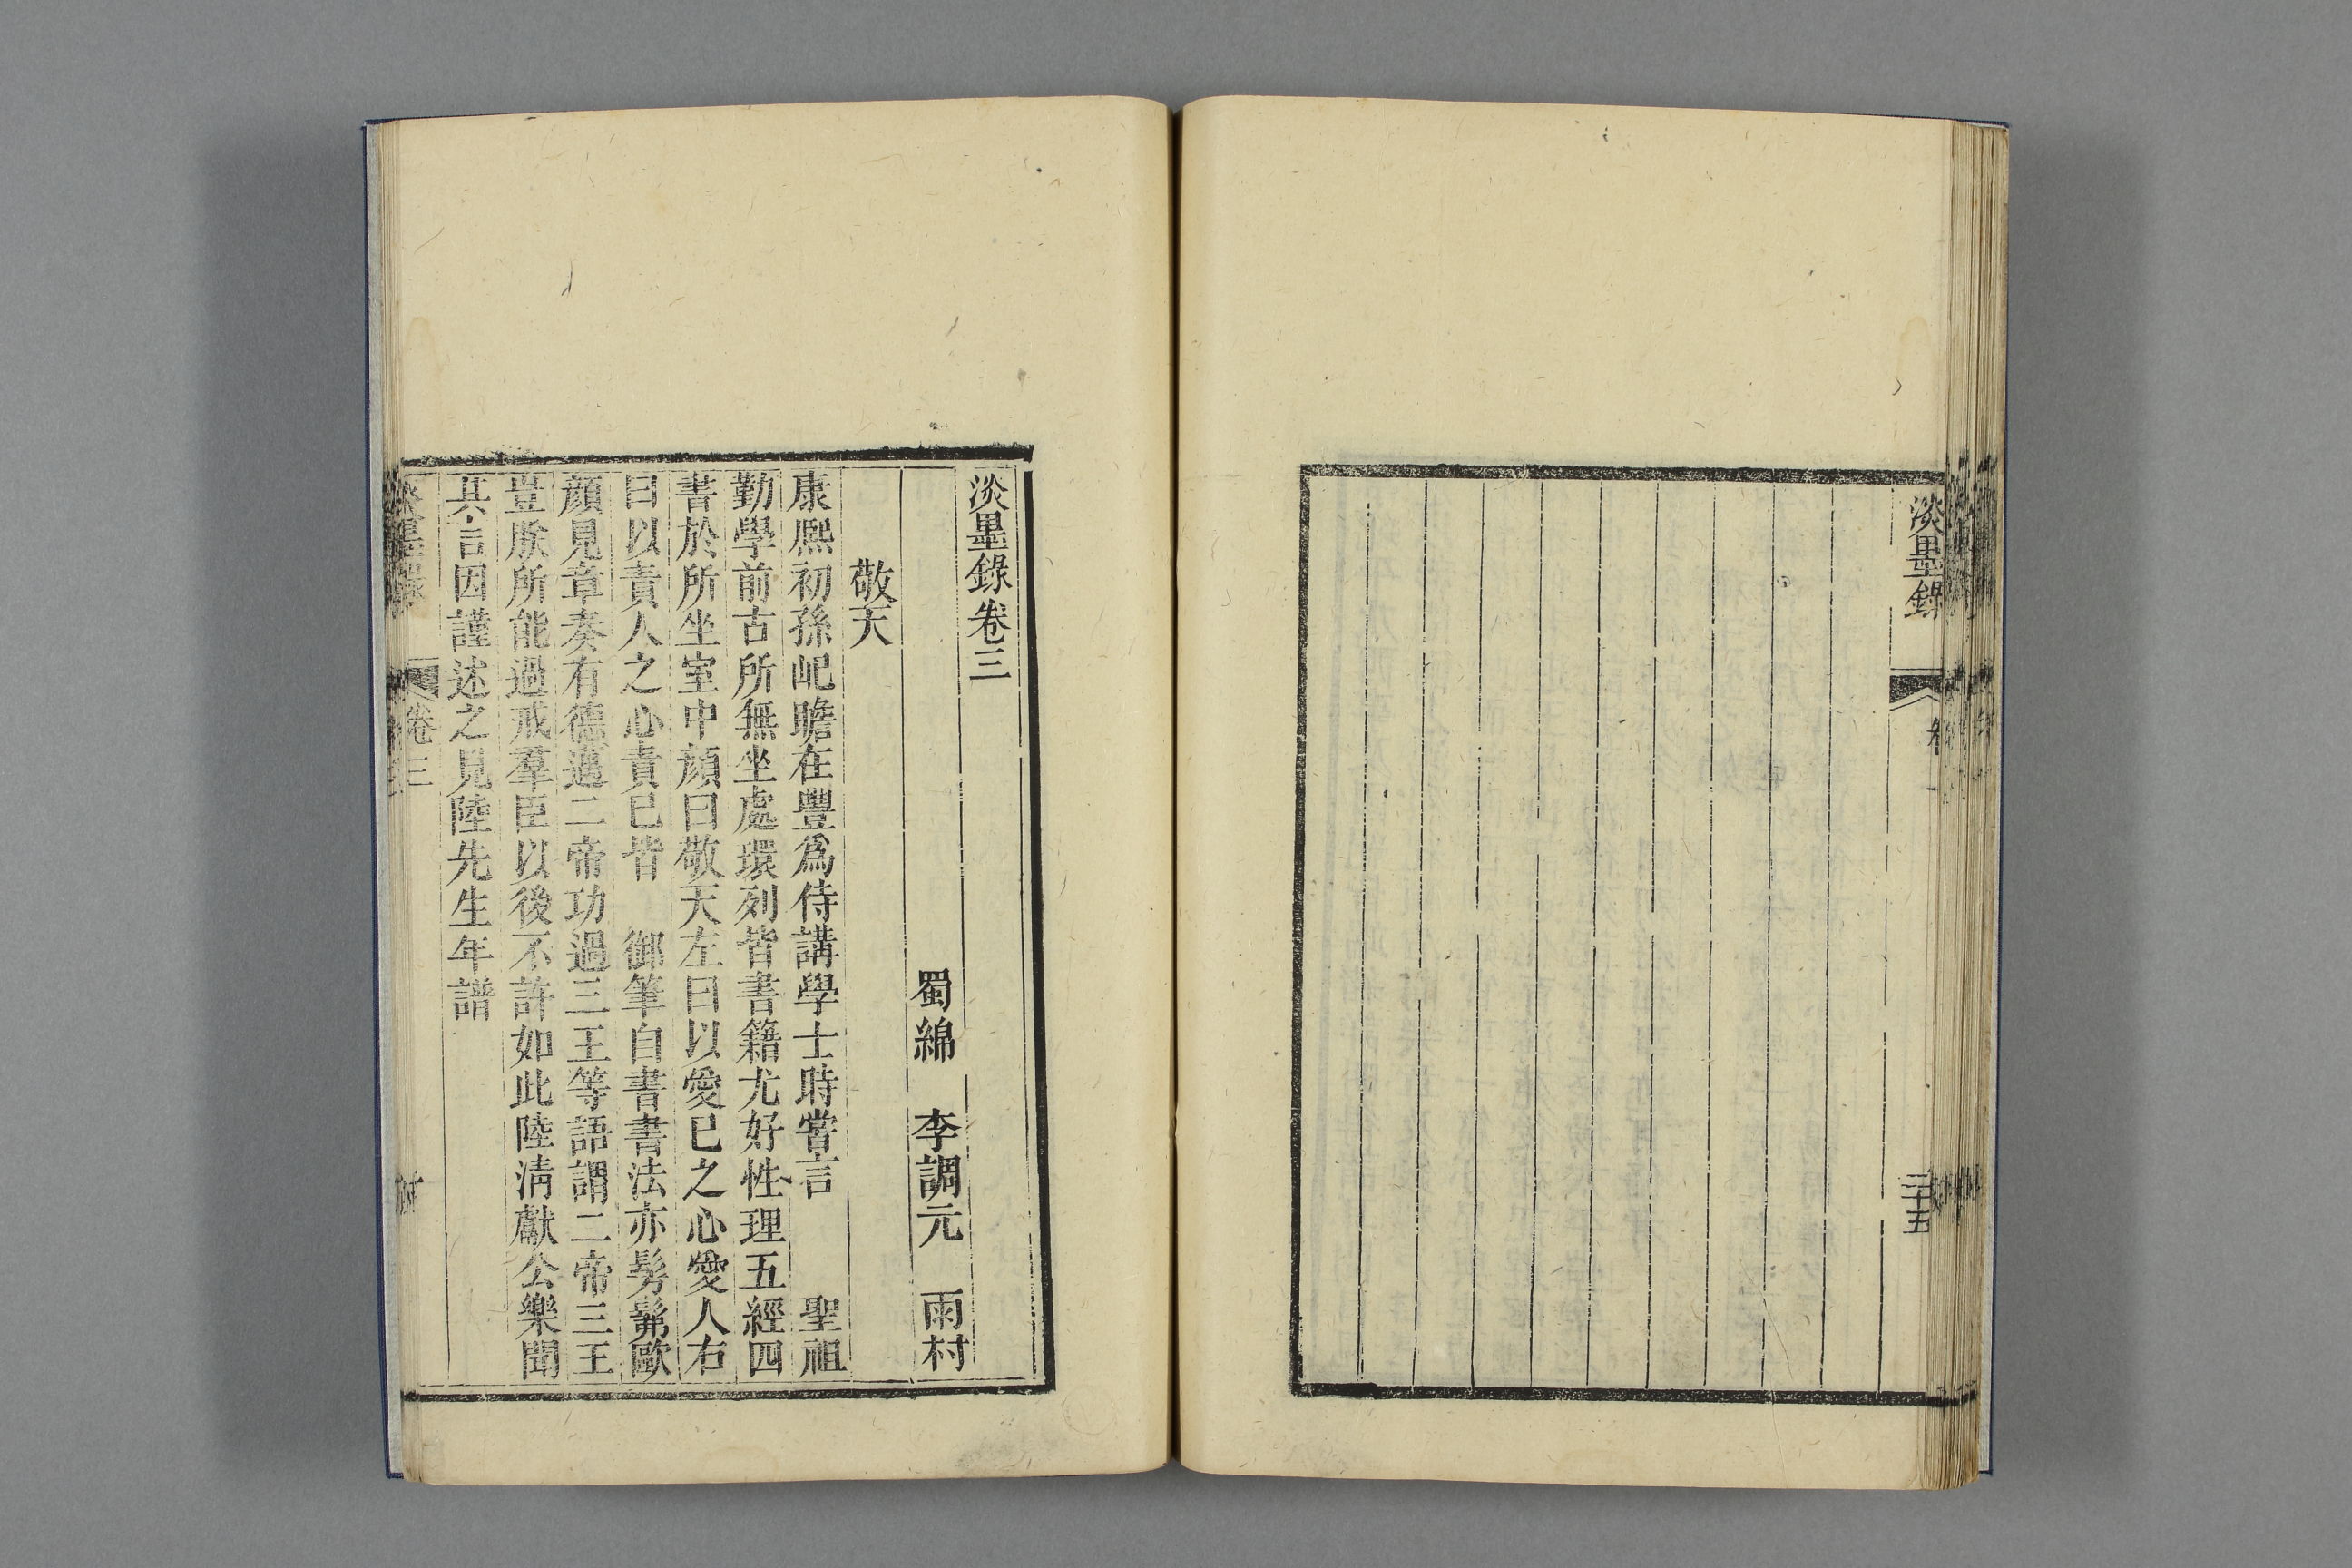 淡墨錄
二十五
淡墨錄卷三
蜀綿 李調元 雨村
敬天
康熙初孫屺瞻在豐爲侍講學士時嘗言 聖祖
勤學前古所無坐處環列皆書籍尤好性理五經四
書於所坐室中顏曰敬天左曰以愛已之心愛人右
曰以責人之心責已皆 御筆自書書法亦髣髴歐
顏見章奏有德邁二帝功過三王等語謂二帝三王
豈朕所能過戒羣臣以後不許如此陸淸獻公樂聞
其言因謹述之見陸先生年譜
卷三